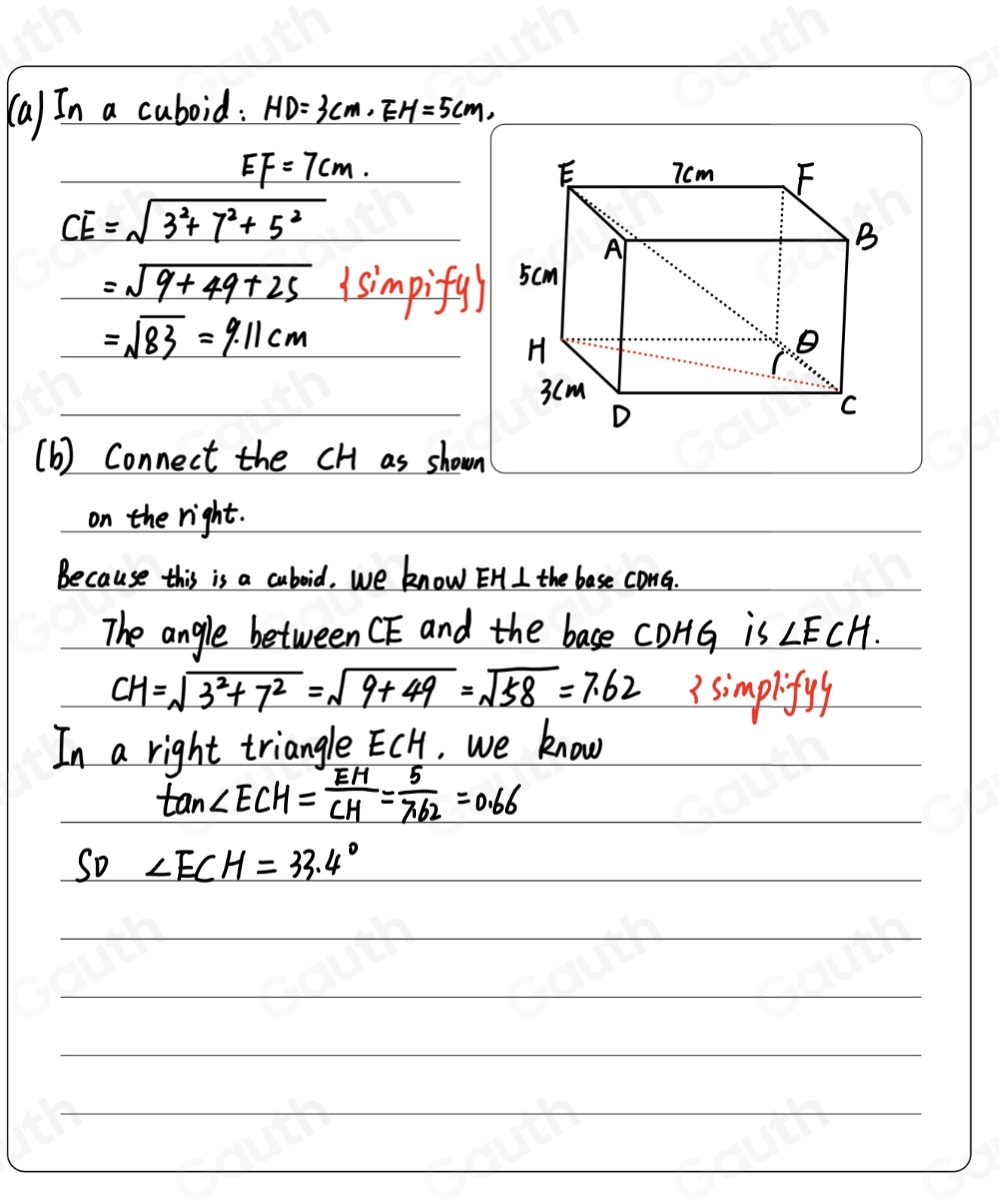 (a) In a cuboid: HD=3cm, EH=5cm,
EF=7cm.
CE=√(3²+7²+5²)
=√(9+49+25) {simpify}
=√83 =9.11cm
E 7cm F
A B
5cm
H θ
3cm D C
(b) Connect the CH as shown
on the right.
Because this is a cuboid. we know EH⊥the base CDHG.
The angle between CE and the base CDHG is ∠ECH.
CH=√(3²+7²)=√(9+49)=√58=7.62 {simplify}
In a right triangle ECH, we know
tan∠ECH=EH/CH=5/7.62=0.66
So ∠ECH=33.4°
Gauth